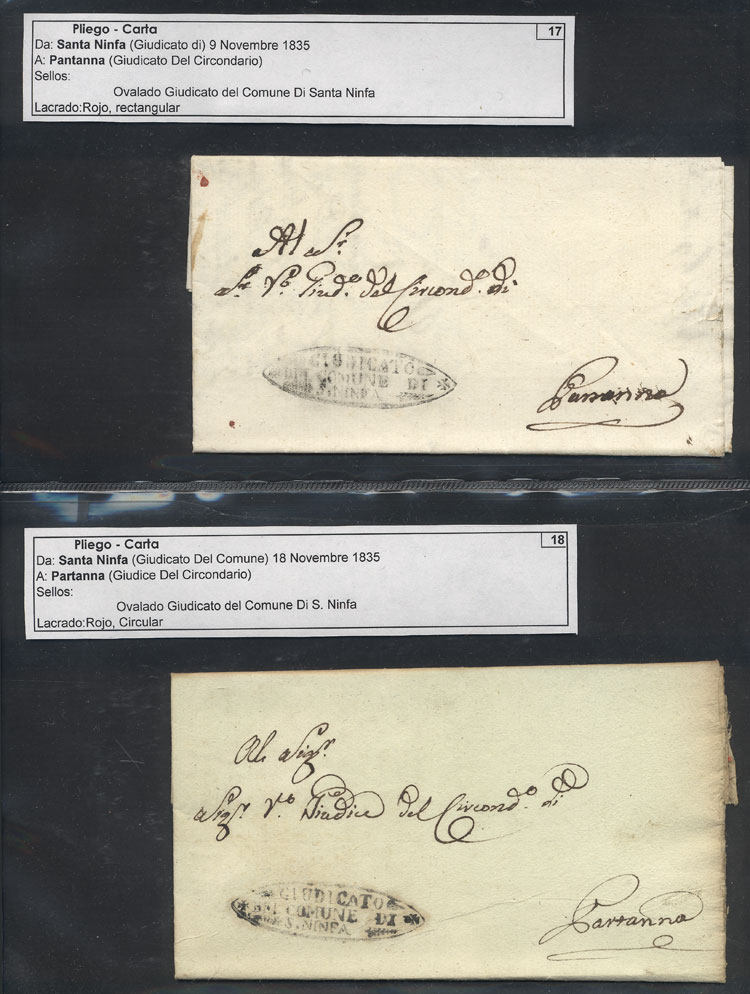 Pliego - Carta
17
Da: Santa Ninfa (Giudicato di) 9 Novembre 1835
A: Pantanna (Giudicato Del Circondario)
Sellos:
Ovalado Giudicato del Comune Di Santa Ninfa
Lacrado:Rojo, rectangular
Al Sr
Sr Vo. Giudo. del Circondo. di
GIUDICATO
DEL COMUNE DI
S. NINFA
Partanna
Pliego - Carta
18
Da: Santa Ninfa (Giudicato Del Comune) 18 Novembre 1835
A: Partanna (Giudice Del Circondario)
Sellos:
Ovalado Giudicato del Comune Di S. Ninfa
Lacrado:Rojo, Circular
Al Sigr.
Sigr. Vo. Giudice del Circondo. di
GIUDICATO
DEL COMUNE DI
S. NINFA
Partanna